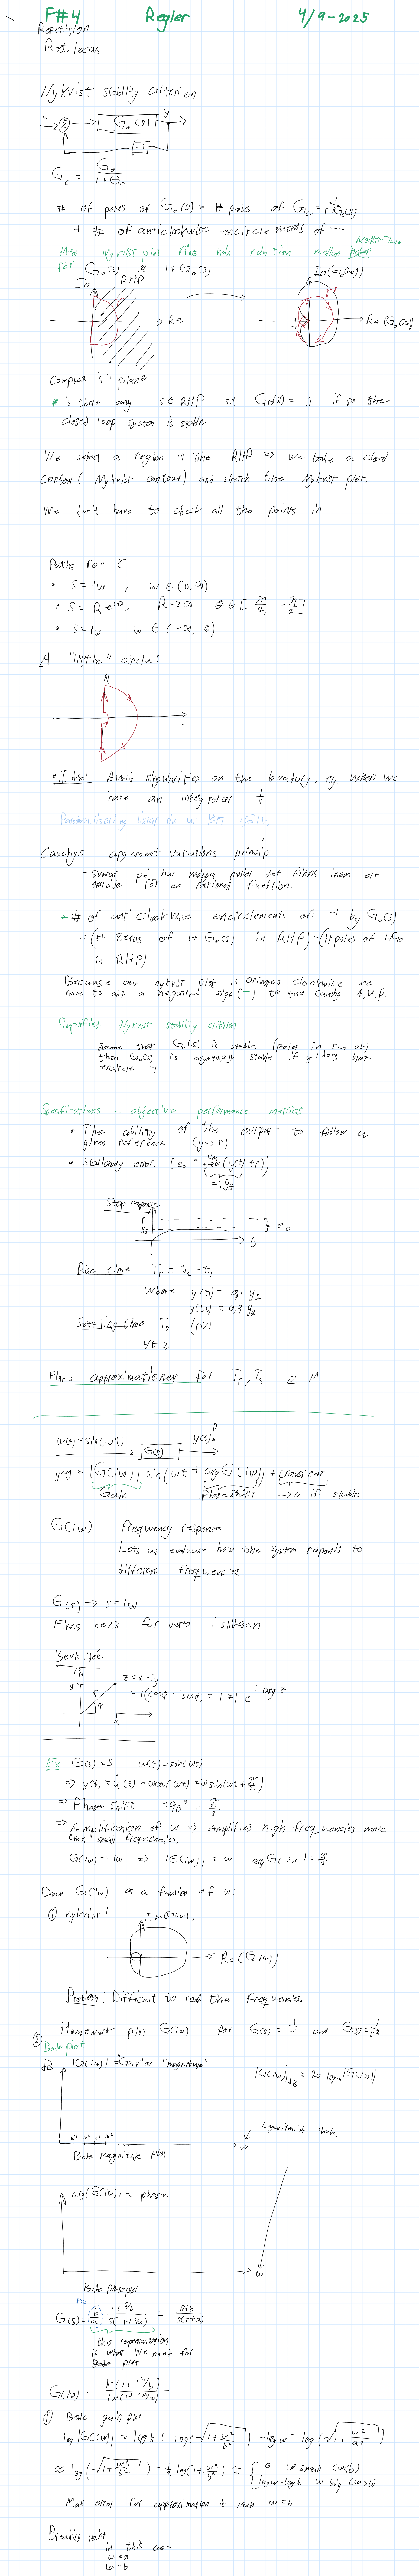 F#4 Regler 4/9-2025
Repetition
Root locus
Nykvist stability criterion
r Σ G₀(s) y
-1
G_c = G₀ / (1+G₀)
# of poles of G₀(s) = # poles of G_c =
+ # of anticlockwise encirclements of ...
Med Nykvist plot finns min relation mellan
för G₀(s) 1+G₀(s)
Im RHP Re
Im(G₀(iω)) -1 Re(G₀(iω))
Complex "s" plane
• is there any s∈RHP s.t. G₀(s) = -1 if so the
closed loop system is stable
We select a region in the RHP => we take a closed
contour (Nykvist contour) and sketch the Nykvist plot.
We don't have to check all the points in
Paths for γ
• s=iω , ω∈(0,∞)
• s=Re^{iθ}, R→∞ θ∈[π/2, -π/2]
• s=iω ω∈(-∞, 0)
A "little" circle:
• Idea: Avoid singularities on the boundary, eg. when we
have an integrator 1/s
Cauchys argument variations princip
- svarar på hur många nollor det finns inom ett
område för en rationell funktion.
- # of anticlockwise encirclements of -1 by G₀(s)
= (# zeros of 1+G₀(s) in RHP) - (# poles of 1+G₀
in RHP)
Because our nykvist plot is oriented clockwise we
have to add a negative sign (-) to the Cauchy A.V.P.
Simplified Nykvist stability criterion
Assume that G₀(s) is stable (poles in s=0 ok)
then G_c(s) is asymptotically stable if -1 does not
encircle -1
Specifications - objective performance metrics
• The ability of the output to follow a
given reference (y→r)
• Stationary error. (e₀ = lim t→∞ (y(t)+r))
=: y_f
Step response
r
y_f } e₀
t
Rise time T_r = t₂-t₁
where y(t₁) = 0,1 y_f
y(t₂) = 0,9 y_f
Settling time T_s (p%)
∀t ≥
Finns approximationer för T_r, T_s & M
u(t)=sin(ωt) G(s) y(t)?
y(t) = |G(iω)| sin(ωt + arg G(iω)) + transient
Gain Phase shift →0 if stable
G(iω) - frequency response
Lets us evaluate how the system responds to
different frequencies
G(s) → s=iω
Finns bevis för detta i slidesen
Bevisidé
y r z=x+iy
φ = r(cosφ+i sinφ) = |z| e^{i arg z}
x
Ex G(s)=s u(t)=sin(ωt)
=> y(t) = u̇(t) = ωcos(ωt) = ω sin(ωt+π/2)
=> Phase shift +90° = π/2
=> Amplification of ω => Amplifies high frequencies more
than small frequencies.
G(iω) = iω => |G(iω)| = ω arg G(iω) = π/2
Draw G(iω) as a function of ω:
① nykvist Im(G(iω))
Re(G(iω))
Problem: Difficult to read the frequencies.
Homework plot G(iω) for G(s) = 1/s and G(s)=1/s²
② Bode plot
dB |G(iω)| = "Gain" or "magnitude"
|G(iω)|_dB = 20 log₁₀|G(iω)|
Logaritmisk skala.
10⁻¹ 10⁰ 10¹ 10² ω
Bode magnitude plot
arg(G(iω)) = phase
ω
Bode phase plot
k=
G(s) = b/a (1+s/b) / (s(1+s/a)) = (s+b) / (s(s+a))
this representation
is what we need for
Bode plot
G(iω) = k(1+iω/b) / (iω(1+iω/a))
① Bode gain plot
log|G(iω)| = log k + log(√(1+ω²/b²)) - log ω - log(√(1+ω²/a²))
≈ log(√(1+ω²/b²)) = 1/2 log(1+ω²/b²) ≈ { 0 ω small (ω<b)
log ω - log b ω big (ω>b)
Max error for approximation is when ω=b
Breaking point
in this case
ω=a
ω=b